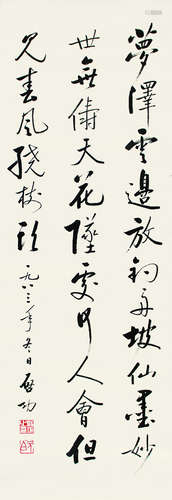 夢澤雲邊放釣舟坡仙墨妙
世無儔天花墜處何人會但
見春風繞樹頭 一九八三年冬日 啟功